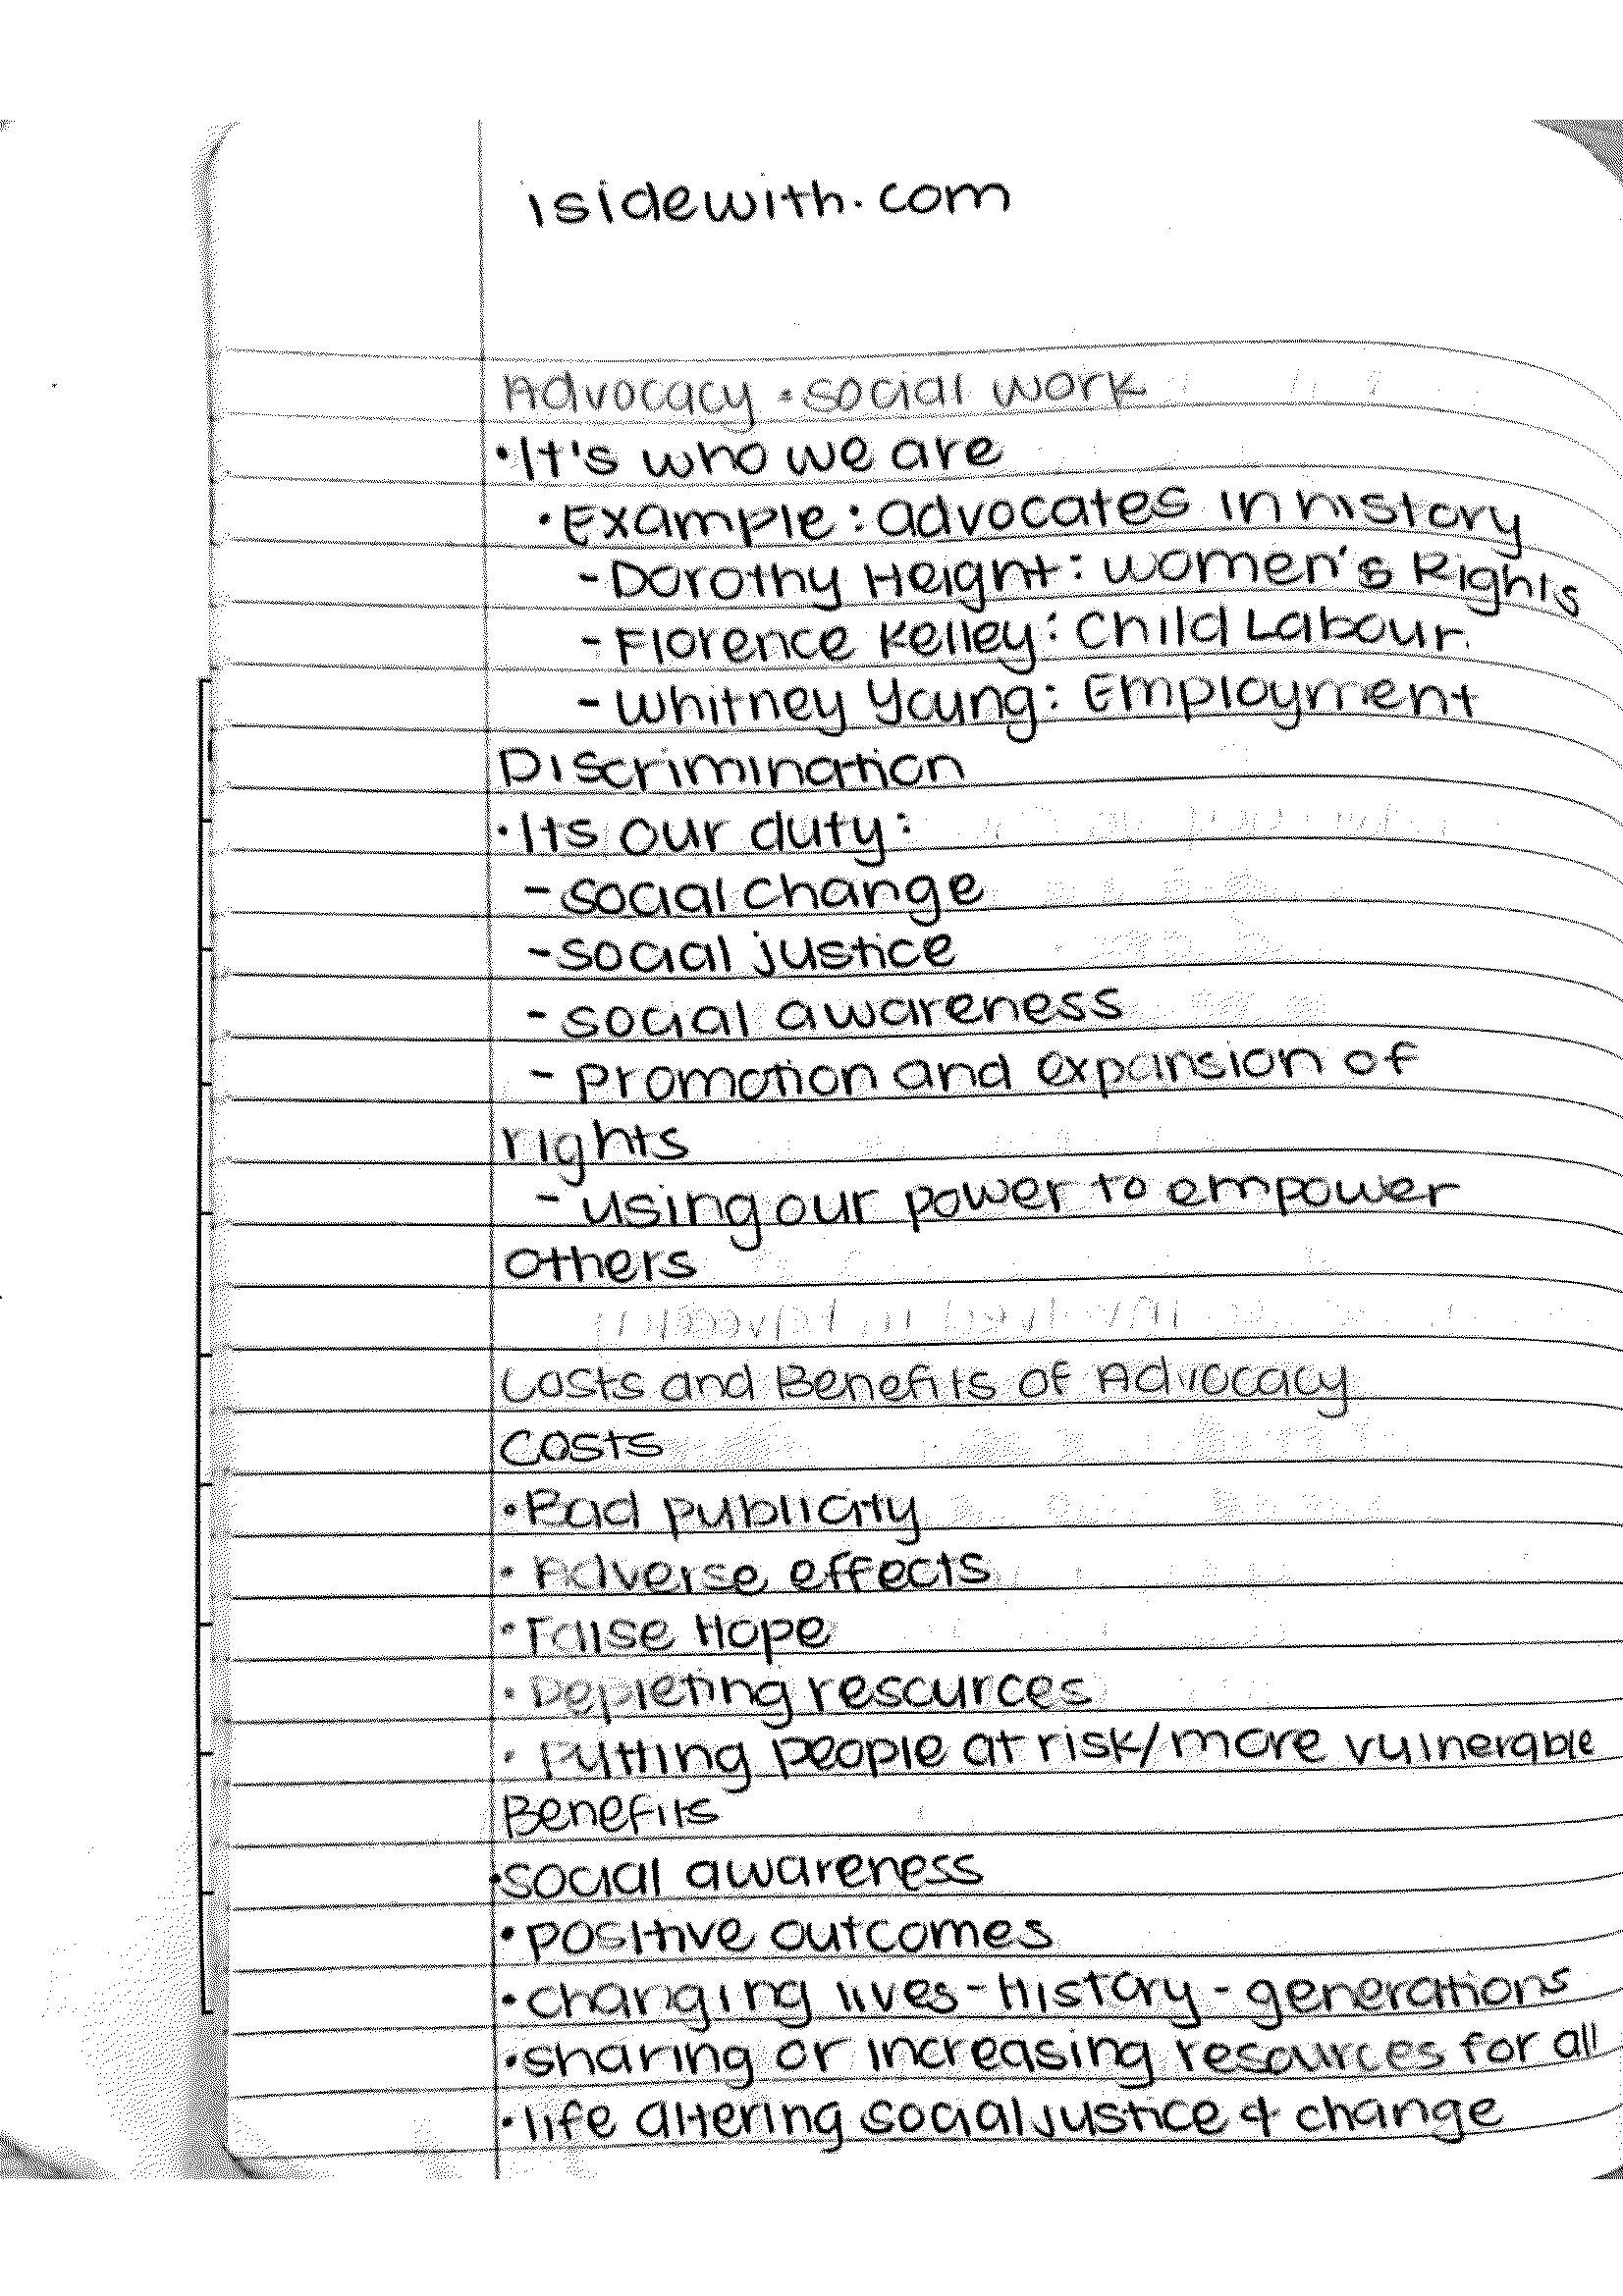 isidewith.com
Advocacy • social work
• It's who we are
• Example: advocates in history
- Dorothy Height: women's Rights
- Florence Kelley: Child Labour.
- Whitney Young: Employment
Discrimination
• Its our duty:
- social change
- social justice
- social awareness
- promotion and expansion of
rights
- using our power to empower
others
Costs and Benefits of Advocacy
Costs
• Bad publicity
• Adverse effects
• False Hope
• Depleting resources
• Putting people at risk/more vulnerable
Benefits
• social awareness
• positive outcomes
• changing lives - History - generations
• sharing or increasing resources for all
• life altering social justice & change